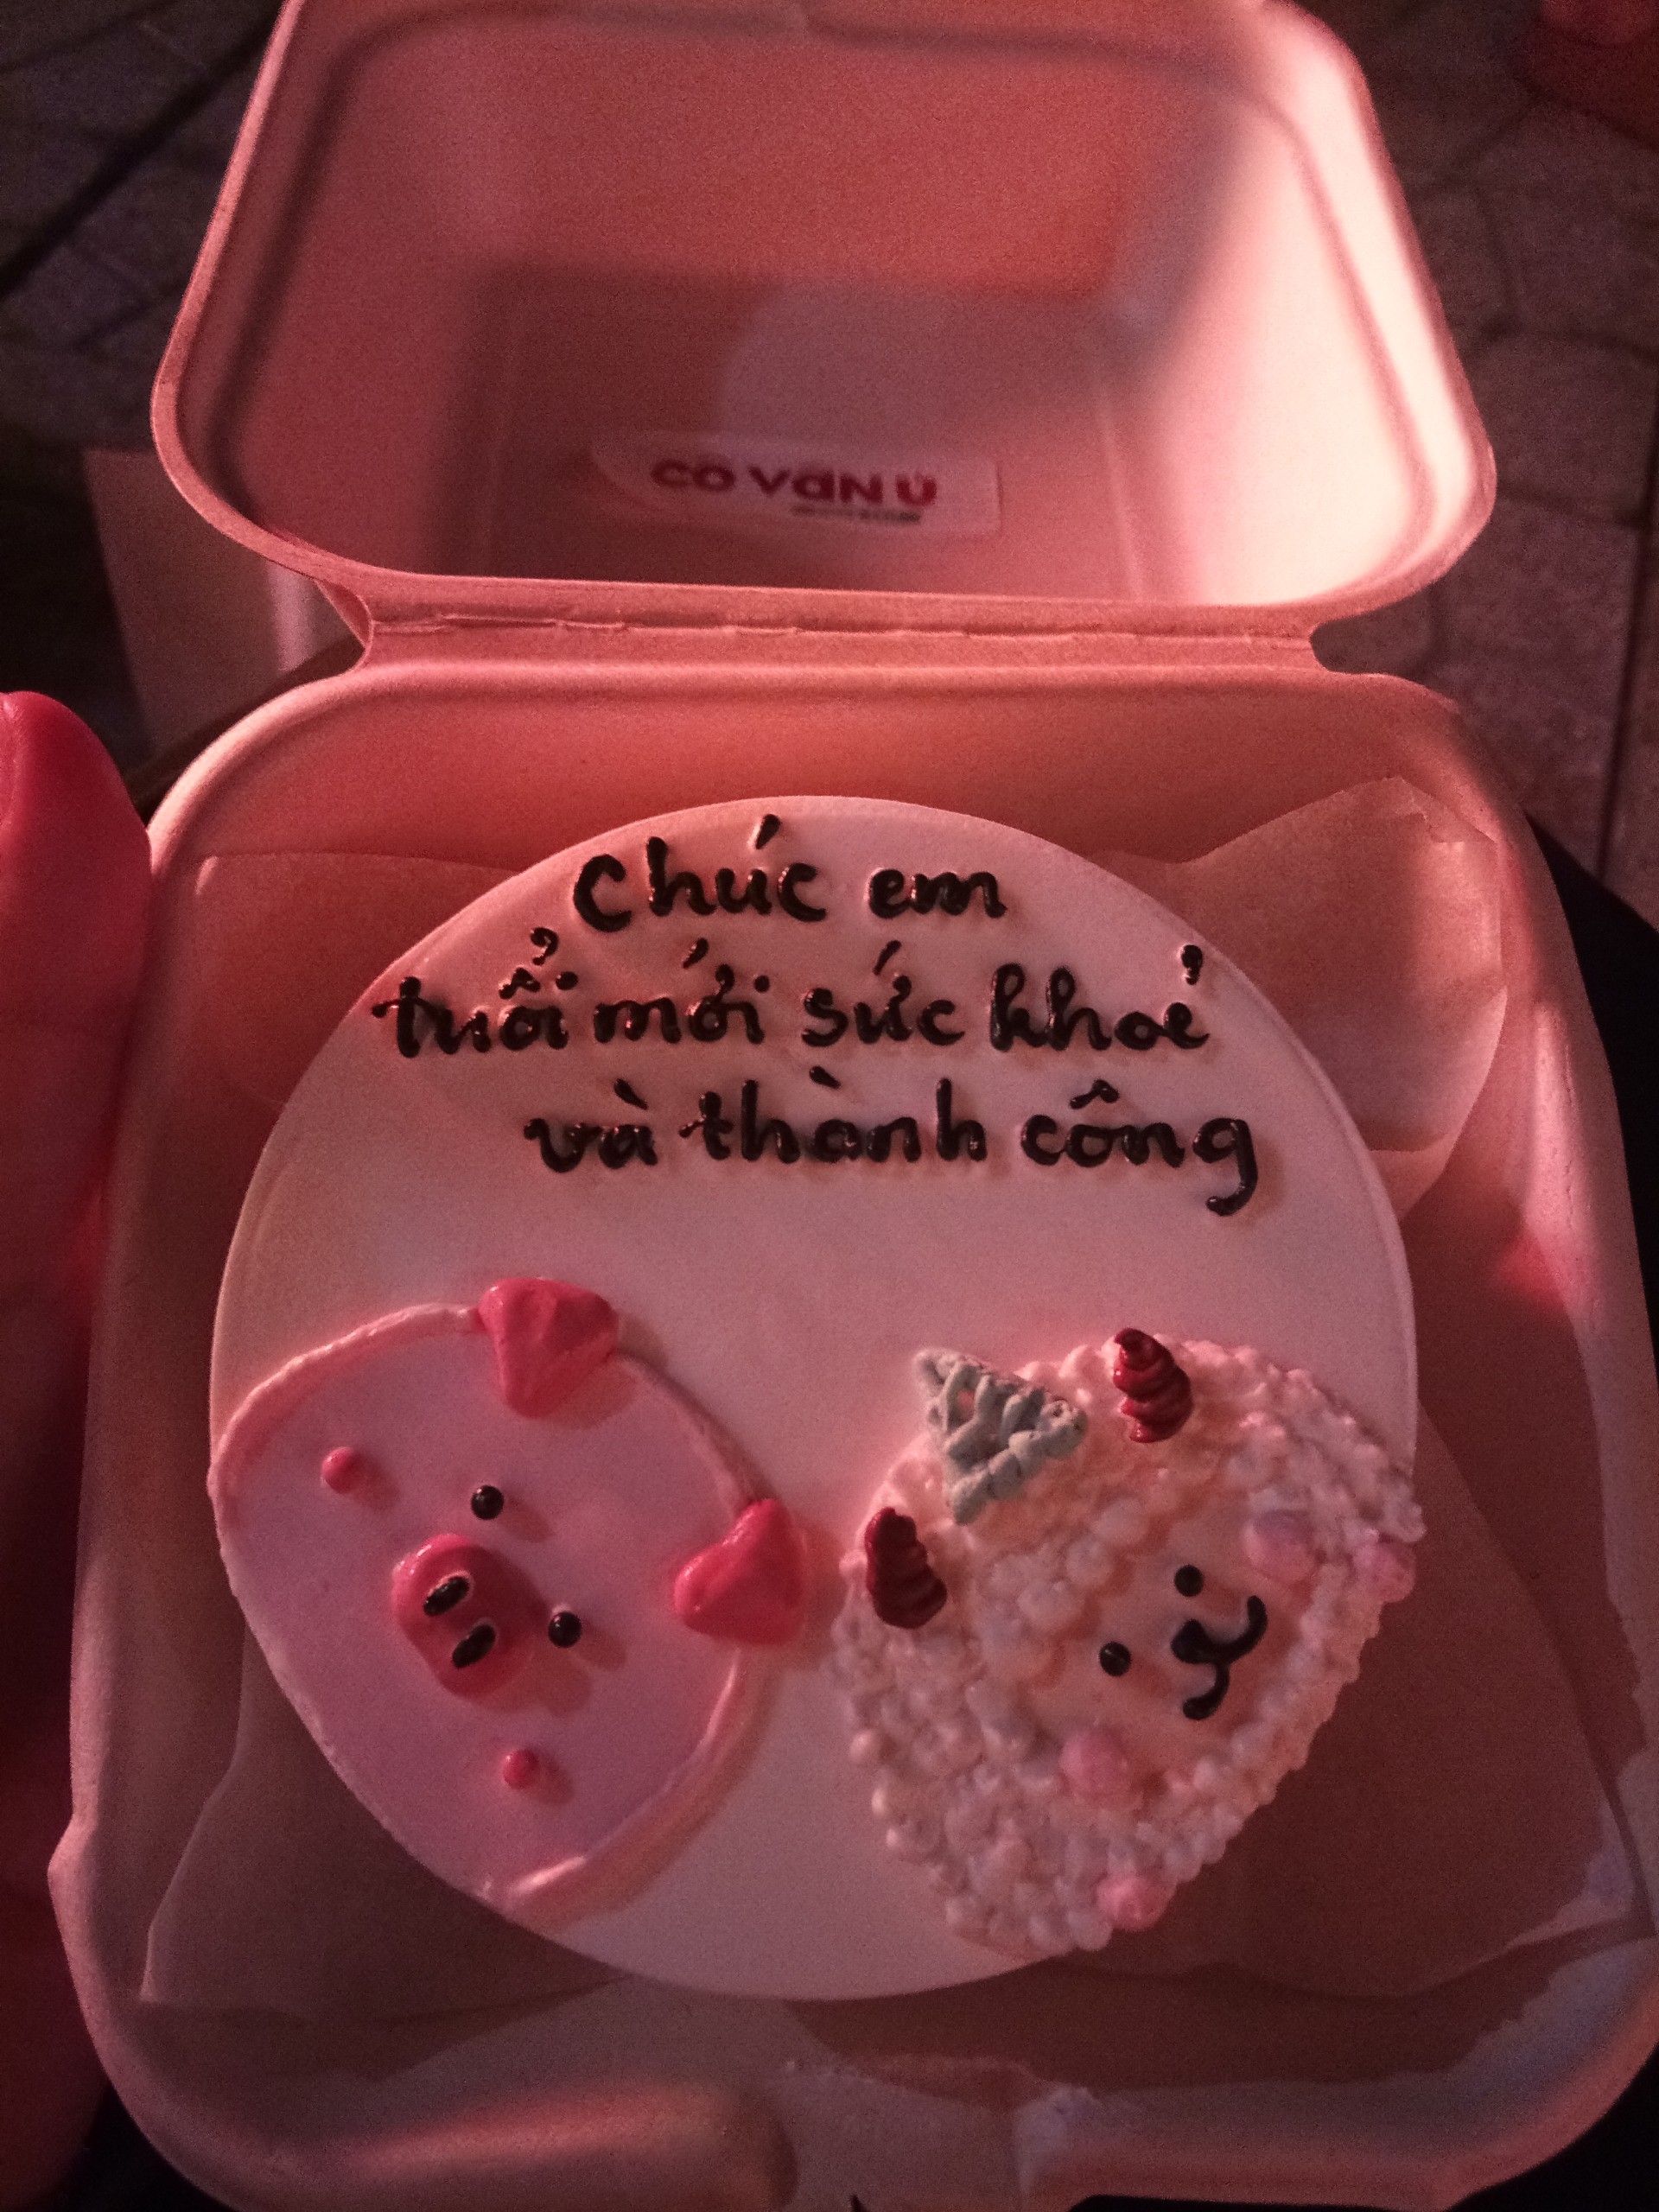 CÔ VĂN Ú
Chúc em
tuổi mới sức khoẻ
và thành công